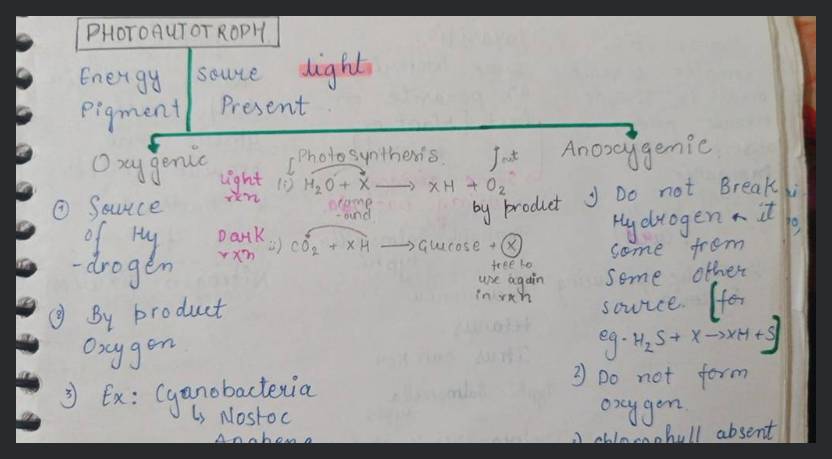 PHOTOAUTOTROPH
Energy Soure light
Pigment Present
Oxygenic
① Source
of Hy
-drogen
② By product
Oxygen
3) Ex: Cyanobacteria
↳ Nostoc
Anabena
Photosynthesis.
light rxn i) H₂O + X → XH + O₂
comp
-ound
by product
Dark rxn ii) CO₂ + XH → Glucose + Ⓧ
free to
use again
in rxn
Anoxygenic
1) Do not Break
Hydrogen & it
come from
some other
source. [for
eg. H₂S + X → XH + S]
2) Do not form
oxygen.
chlorophyll absent